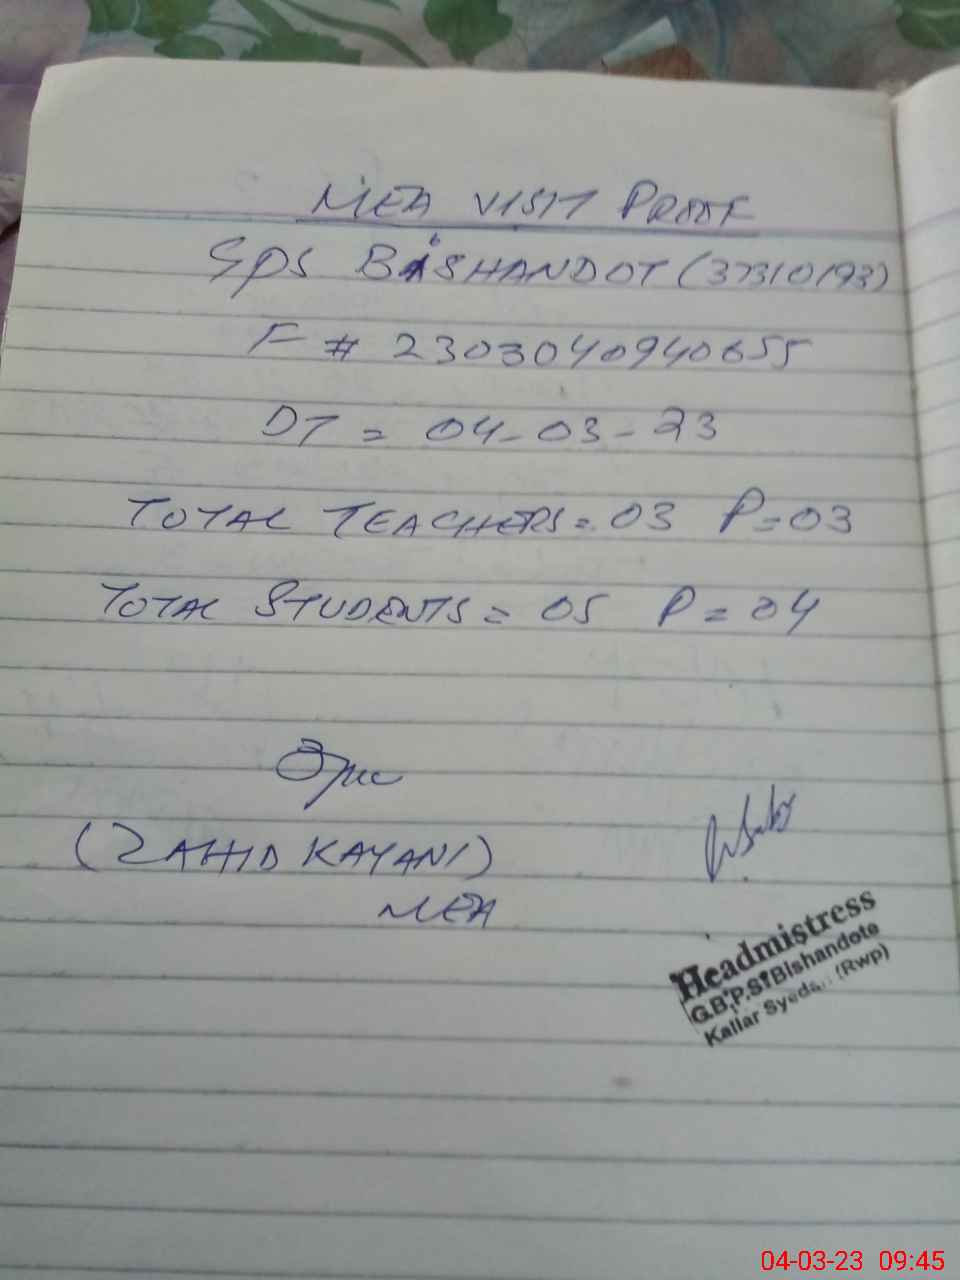 MEA VISIT PROOF
GPS BISHANDOT (37310193)
F # 2303040940655
DT = 04-03-23
TOTAL TEACHERS = 03 P = 03
TOTAL STUDENTS = 05 P = 04
(ZAHID KAYANI)
MEA
Headmistress
G.B.P.S Bishandote
Kallar Syeda (Rwp)
04-03-23 09:45